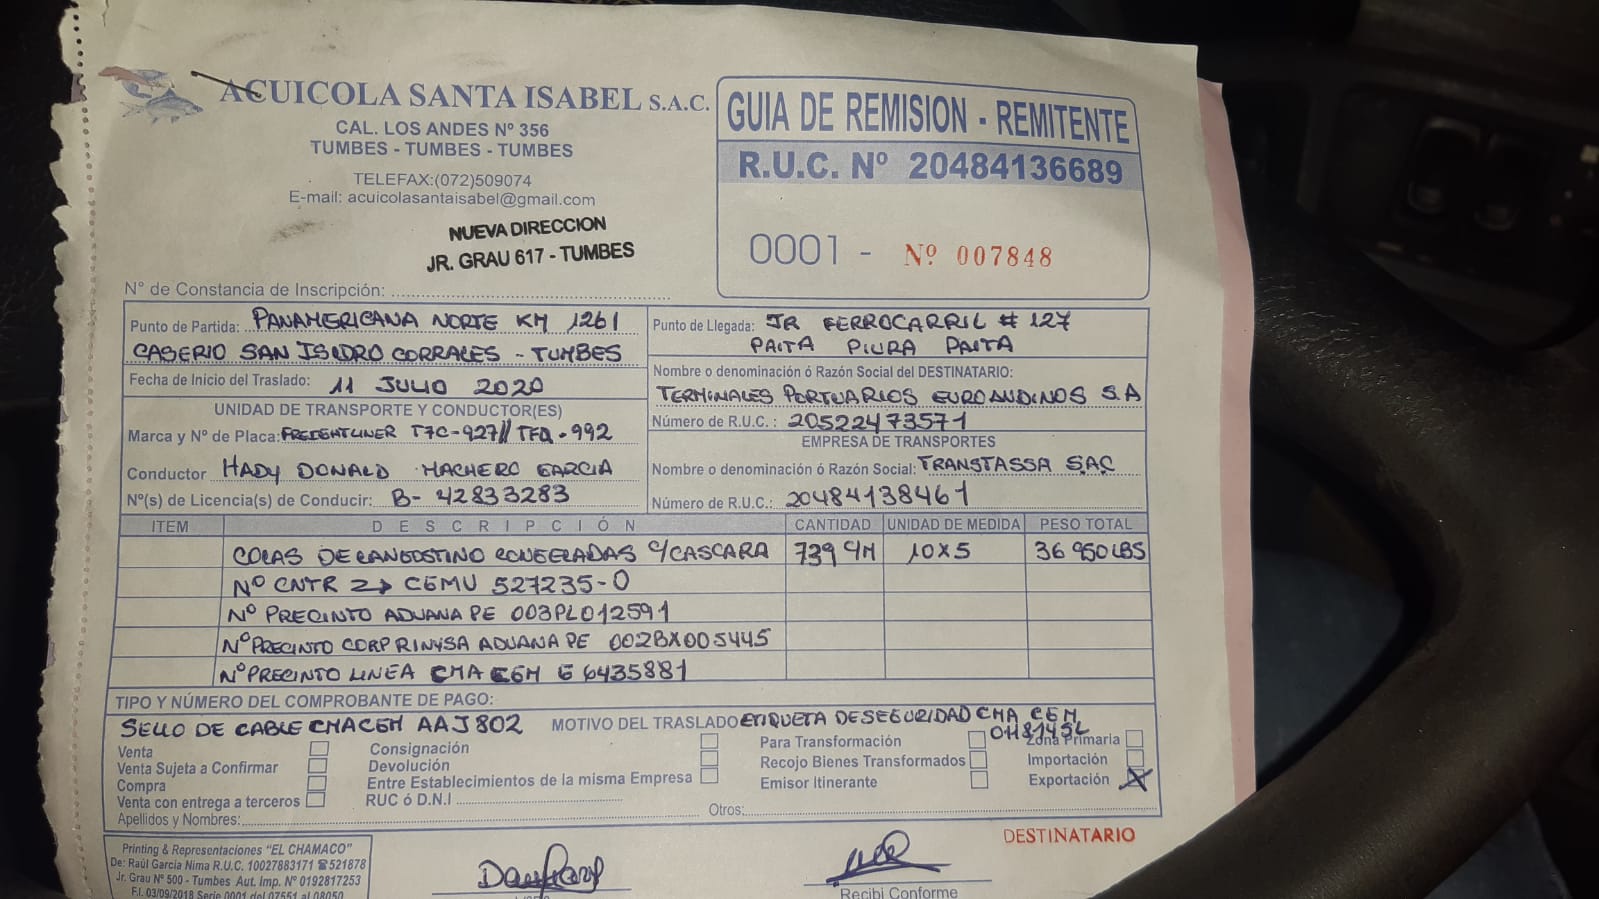 ACUICOLA SANTA ISABEL S.A.C.
CAL. LOS ANDES Nº 356
TUMBES - TUMBES - TUMBES
TELEFAX:(072)509074
E-mail: acuicolasantaisabel@gmail.com
NUEVA DIRECCION
JR. GRAU 617 - TUMBES
GUIA DE REMISION - REMITENTE
R.U.C. Nº 20484136689
0001 - Nº 007848
N° de Constancia de Inscripción:
Punto de Partida: PANAMERICANA NORTE KM 1261
CASERIO SAN ISIDRO CORRALES - TUMBES
Fecha de Inicio del Traslado: 11 JULIO 2020
Punto de Llegada: JR FERROCARRIL # 127
PAITA PIURA PAITA
Nombre o denominación ó Razón Social del DESTINATARIO:
TERMINALES PORTUARIOS EUROANDINOS S.A
Número de R.U.C.: 20522473571
UNIDAD DE TRANSPORTE Y CONDUCTOR(ES)
Marca y Nº de Placa: FREIGHTLINER T7C-927// TFQ-992
Conductor HADY DONALD MACHERO GARCIA
Nº(s) de Licencia(s) de Conducir: B- 42833283
EMPRESA DE TRANSPORTES
Nombre o denominación ó Razón Social: TRANSTASSA SAC
Número de R.U.C.: 20484138461
ITEM DESCRIPCIÓN CANTIDAD UNIDAD DE MEDIDA PESO TOTAL
COLAS DE LANGOSTINO CONGELADAS C/CASCARA 739 C/M 10X5 36 950 LBS
Nº CNTR CGMU 527235-0
Nº PRECINTO ADUANA PE 003PL012591
Nº PRECINTO CORP RINYSA ADUANA PE 002BX005445
Nº PRECINTO LINEA CMA CGM G 6435881
TIPO Y NÚMERO DEL COMPROBANTE DE PAGO:
SELLO DE CABLE CMACGM AAJ802
MOTIVO DEL TRASLADO ETIQUETA DE SEGURIDAD CMA CGM
0118145L
Venta
Venta Sujeta a Confirmar
Compra
Venta con entrega a terceros
Consignación
Devolución
Entre Establecimientos de la misma Empresa
RUC ó D.N.I
Para Transformación
Recojo Bienes Transformados
Emisor Itinerante
Zona Primaria
Importación
Exportación X
Apellidos y Nombres:
Otros:
DESTINATARIO
Printing & Representaciones "EL CHAMACO"
De: Raúl Garcia Nima R.U.C. 10027883171 ☎521878
Jr. Grau Nº 500 - Tumbes Aut. Imp. Nº 0192817253
F.I. 03/09/2018 Serie 0001 del 07551 al 08050
Recibi Conforme